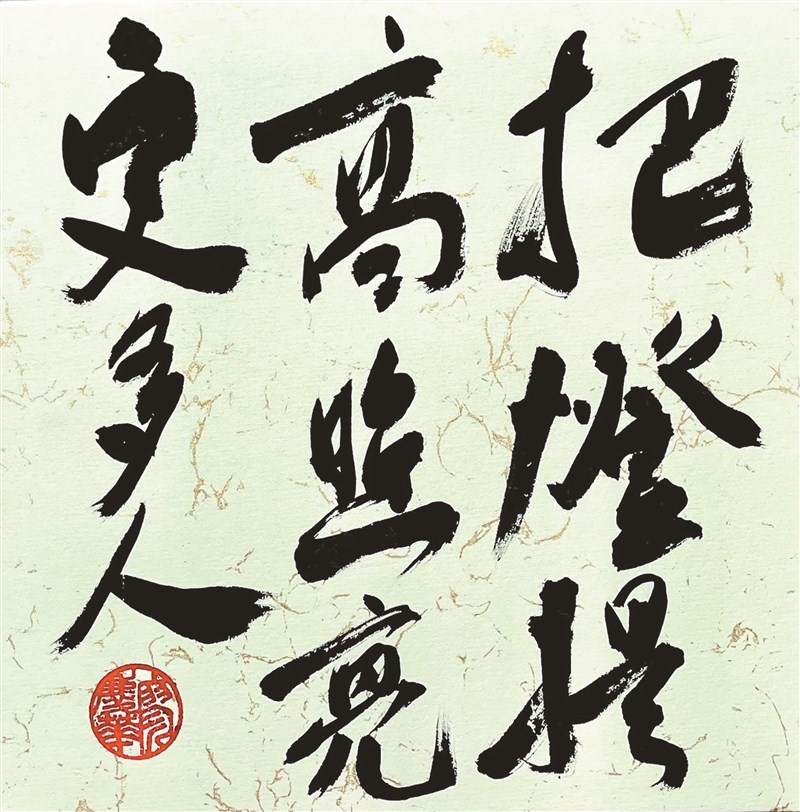 把燈提
高照亮
更多人